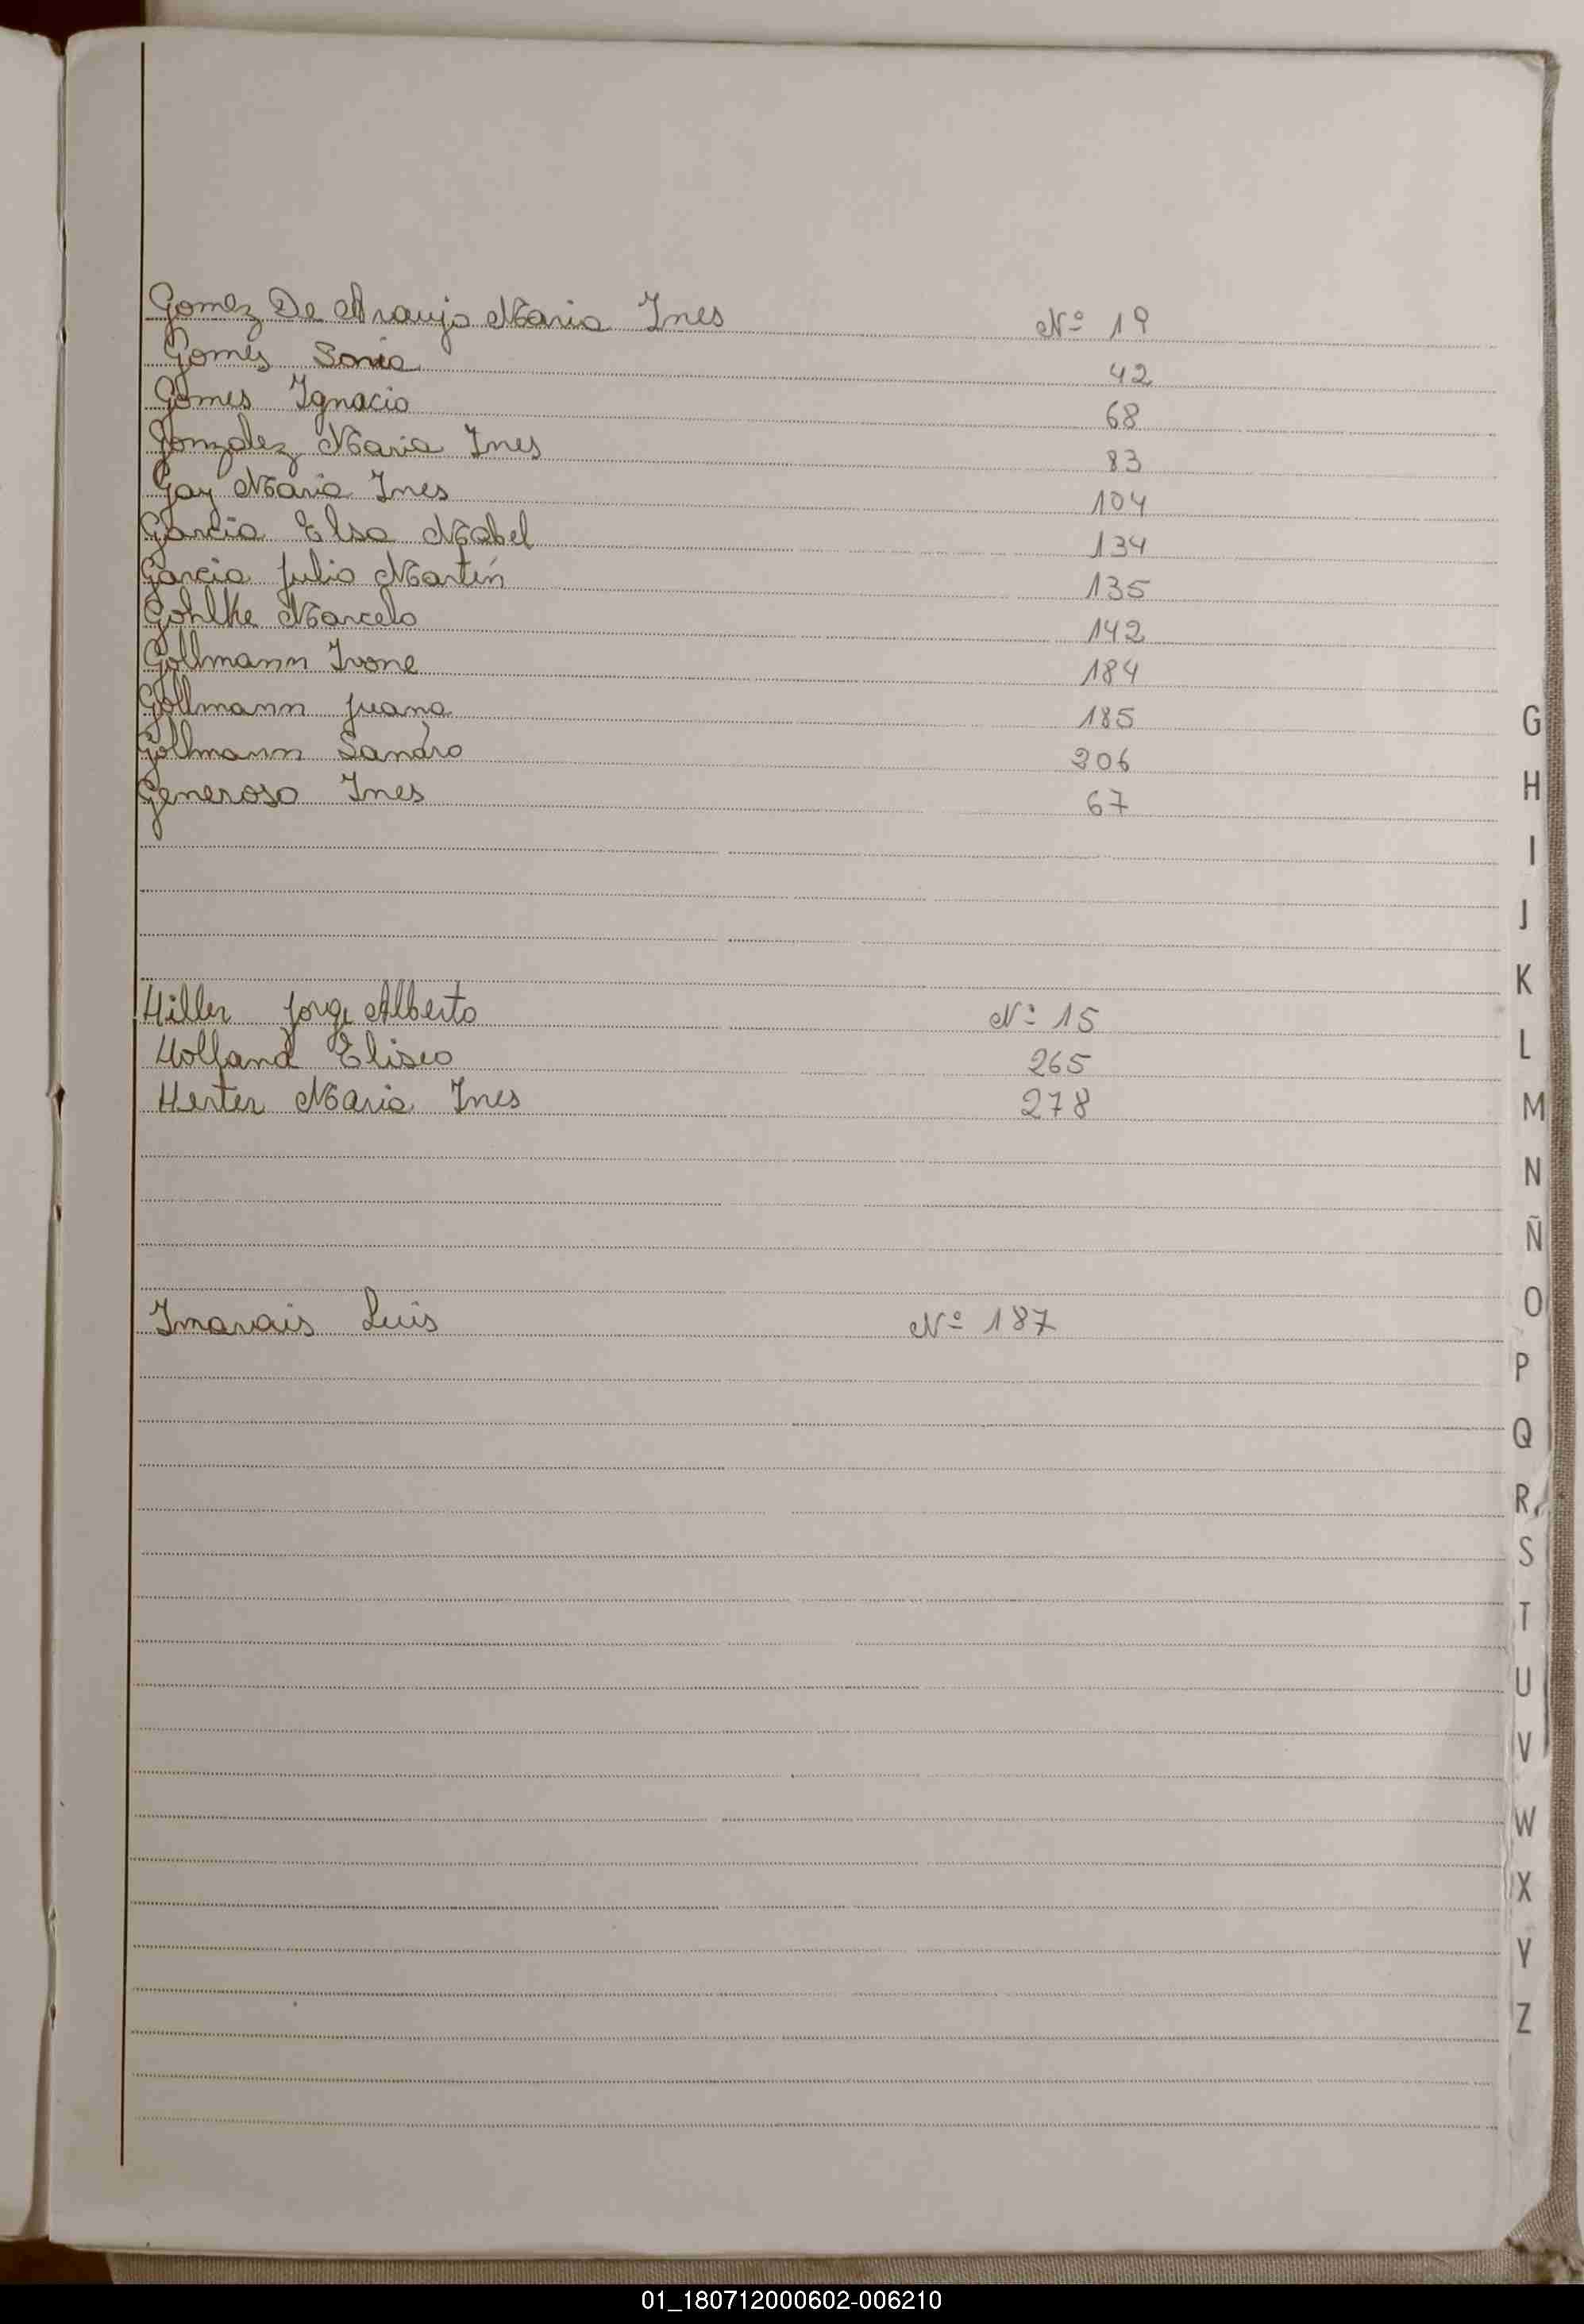 Gomez De Araujo Maria Ines Nº 19
Gomes Sonia 42
Gomes Ignacio 68
Gonzalez Maria Ines 83
Gay Maria Ines 104
Garcia Elsa Mabel 134
Garcia Julio Martín 135
Gohlke Marcelo 142
Gollmann Ivone 184
Gollmann Juana 185
Gollmann Sandro 206
Generoso Ines 67
Hiller Jorge Alberto Nº 15
Holland Eliseo 265
Herter Maria Ines 278
Imarais Luis Nº 187
G
H
I
J
K
L
M
N
Ñ
O
P
Q
R
S
T
U
V
W
X
Y
Z
01_180712000602-006210